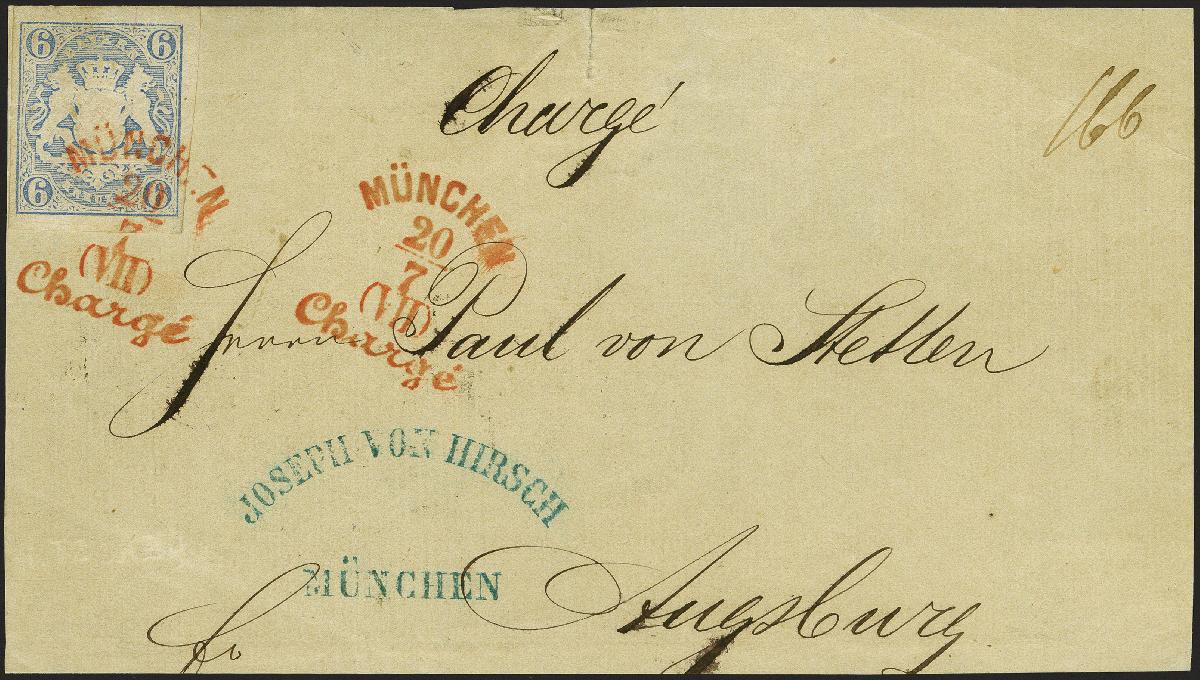 6 6
BAYERN
6 6
MÜNCHEN
20
7
(VII)
Chargé
Chargé
166
MÜNCHEN
20
7
(VII)
Chargé
Herrn Paul von Stetten
JOSEPH VON HIRSCH
MÜNCHEN
fr
Augsburg